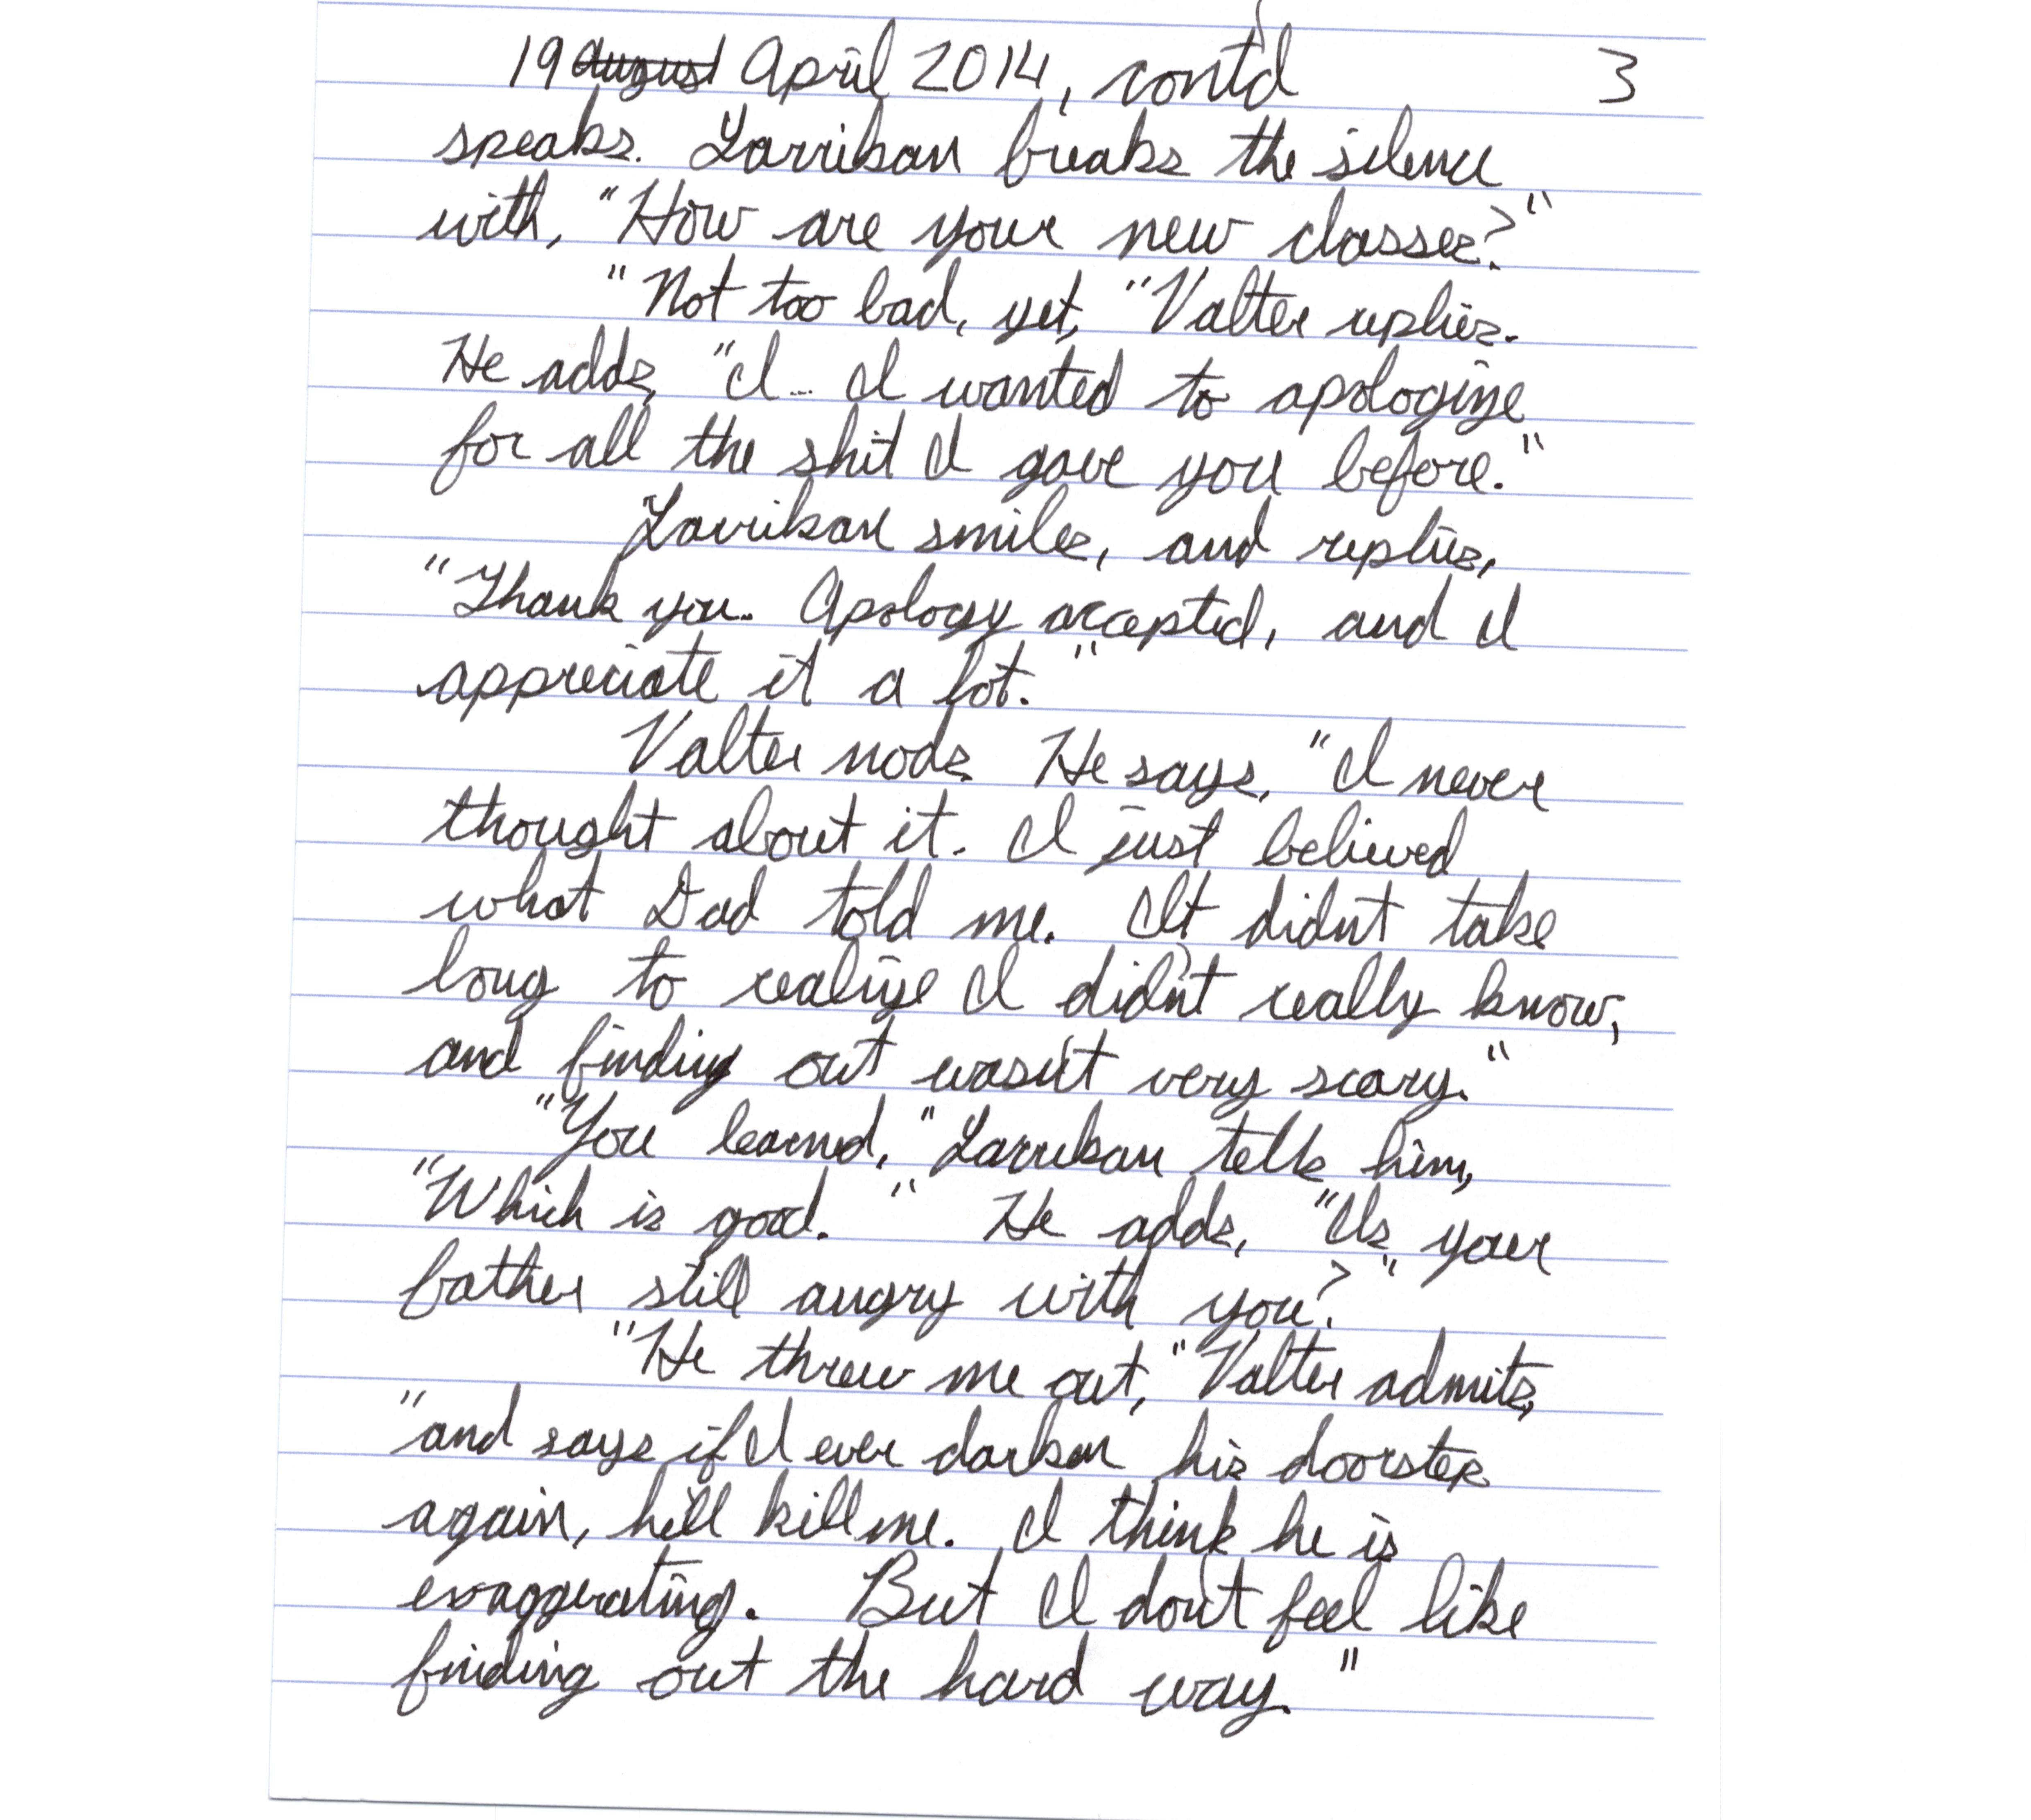 19 August April 2014, cont'd 3
speaks. Larrikan breaks the silence
with, "How are your new classes?"
"Not too bad, yet," Valter replies.
He adds, "I... I wanted to apologize
for all the shit I gave you before."
Larrikan smiles, and replies,
"Thank you. Apology accepted, and I
appreciate it a lot."
Valter nods. He says, "I never
thought about it. I just believed
what Dad told me. It didnt take
long to realize I didn't really know,
and finding out wasn't very scary."
"You learned," Larrikan tells him,
"Which is good." He adds, "Is your
father still angry with you?"
"He threw me out," Valter admits,
"and says if I ever darken his doorstep
again, he'll kill me. I think he is
exaggerating. But I don't feel like
finding out the hard way."